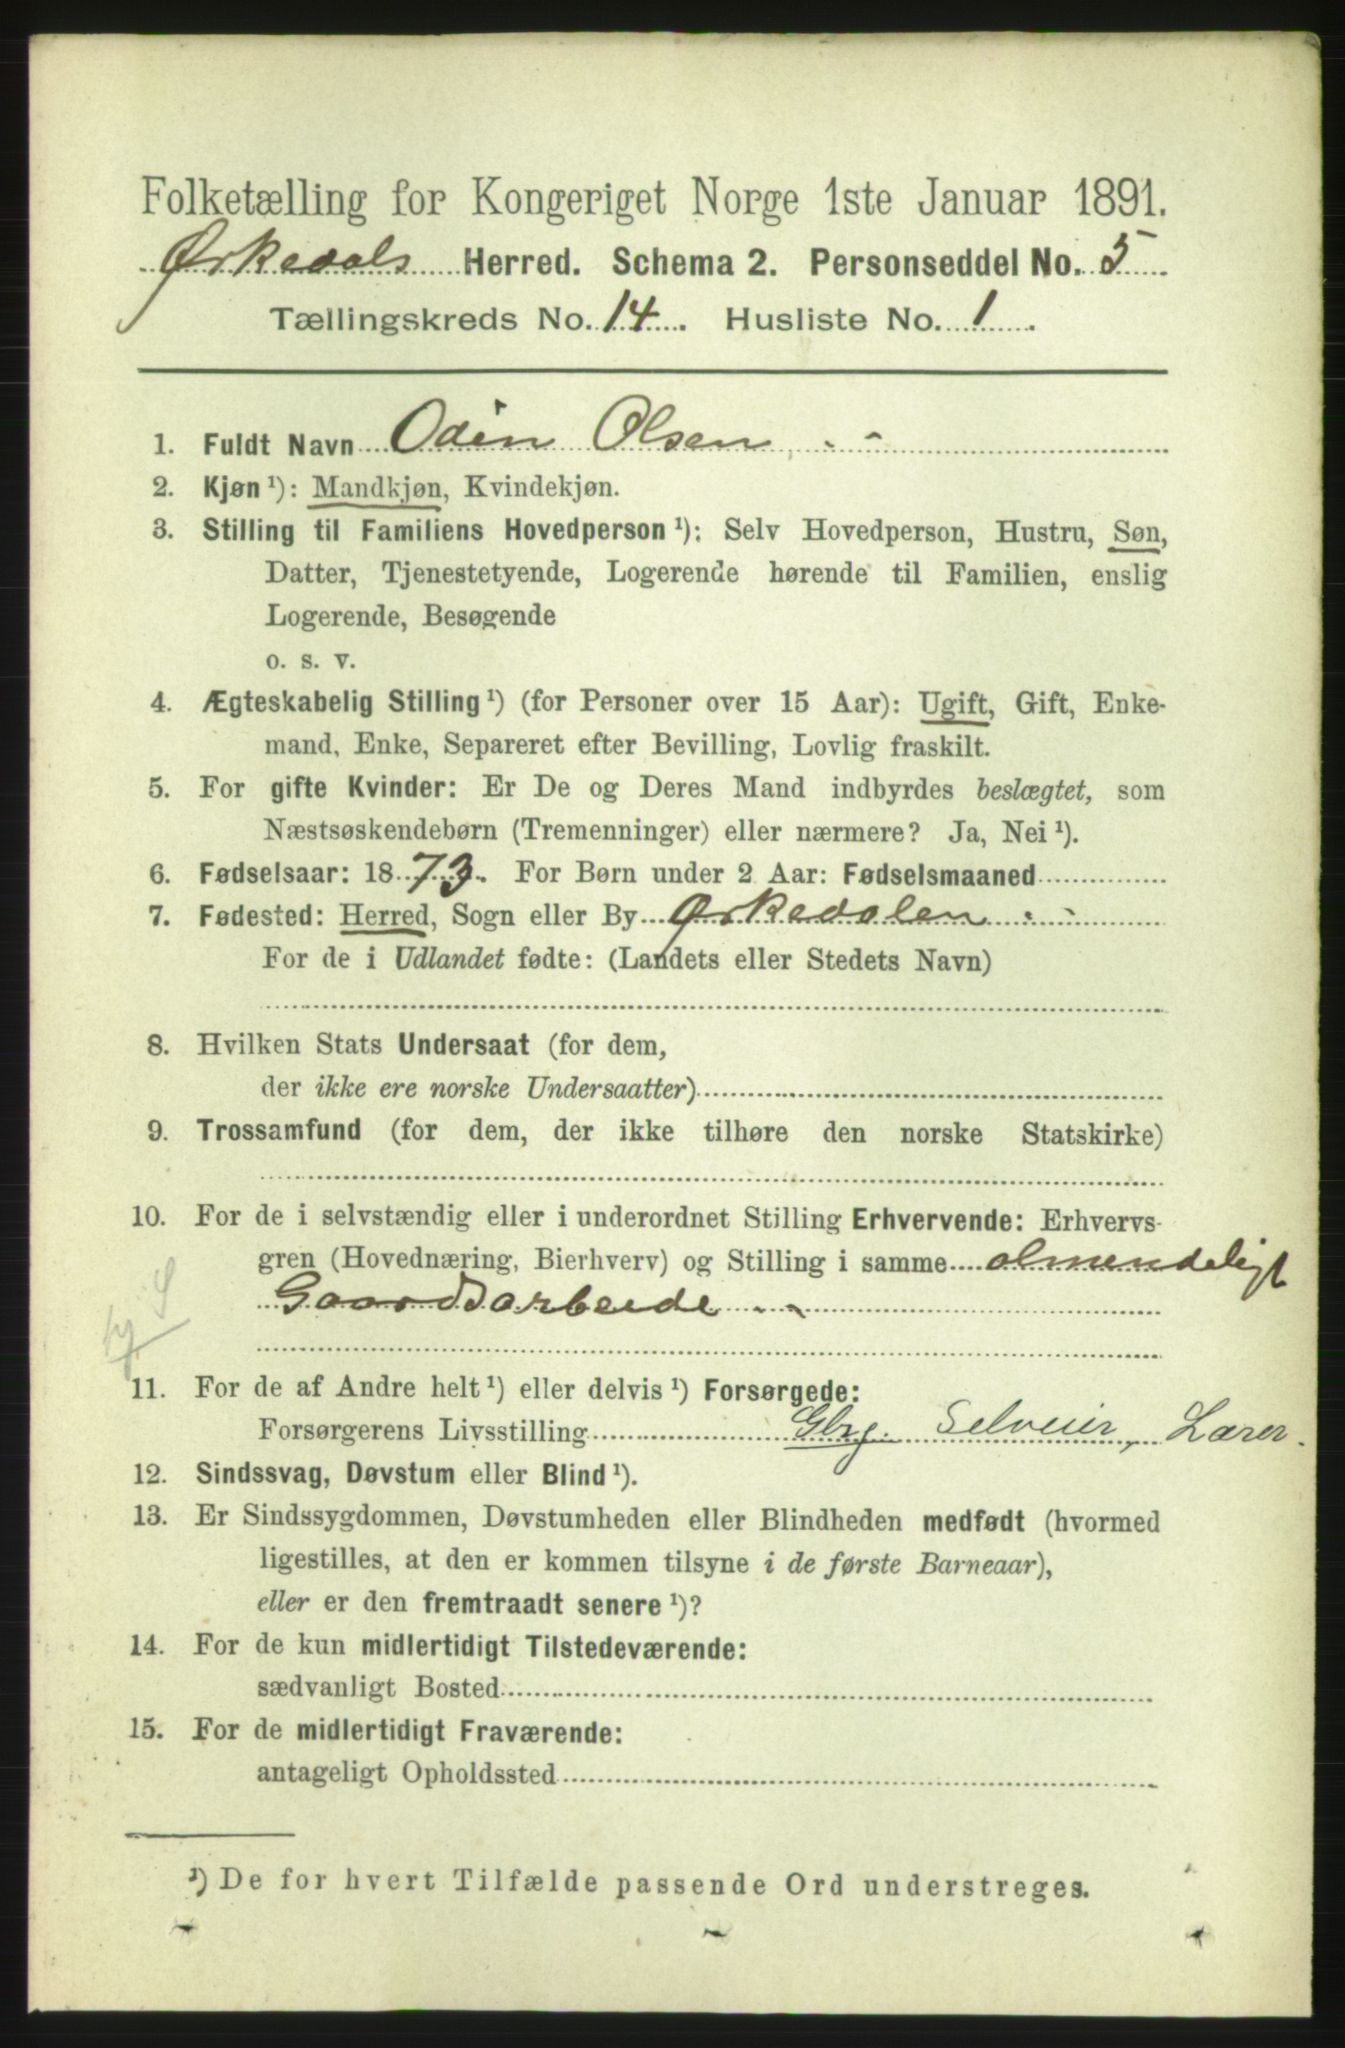 Folketælling for Kongeriget Norge 1ste Januar 1891.
Ørkedals Herred. Schema 2. Personseddel No. 5
Tællingskreds No. 14. Husliste No. 1.
1. Fuldt Navn Odin Olsen
2. Kjøn ¹): Mandkjøn, Kvindekjøn.
3. Stilling til Familiens Hovedperson ¹): Selv Hovedperson, Hustru, Søn,
Datter, Tjenestetyende, Logerende hørende til Familien, enslig
Logerende, Besøgende
o. s. v.
4. Ægteskabelig Stilling ¹) (for Personer over 15 Aar): Ugift, Gift, Enke-
mand, Enke, Separeret efter Bevilling, Lovlig fraskilt.
5. For gifte Kvinder: Er De og Deres Mand indbyrdes beslægtet, som
Næstsøskendebørn (Tremenninger) eller nærmere? Ja, Nei ¹).
6. Fødselsaar: 1873. For Børn under 2 Aar: Fødselsmaaned
7. Fødested: Herred, Sogn eller By Ørkedalen
For de i Udlandet fødte: (Landets eller Stedets Navn)
8. Hvilken Stats Undersaat (for dem,
der ikke ere norske Undersaatter)
9. Trossamfund (for dem, der ikke tilhøre den norske Statskirke)
10. For de i selvstændig eller i underordnet Stilling Erhvervende: Erhvervs-
gren (Hovednæring, Bierhverv) og Stilling i samme almendeligt
Gaardsarbeide
11. For de af Andre helt ¹) eller delvis ¹) Forsørgede:
Forsørgerens Livsstilling Gbrg. Selveier, Lærer.
12. Sindssvag, Døvstum eller Blind ¹).
13. Er Sindssygdommen, Døvstumheden eller Blindheden medfødt (hvormed
ligestilles, at den er kommen tilsyne i de første Barneaar),
eller er den fremtraadt senere ¹)?
14. For de kun midlertidigt Tilstedeværende:
sædvanligt Bosted
15. For de midlertidigt Fraværende:
antageligt Opholdssted
¹) De for hvert Tilfælde passende Ord understreges.